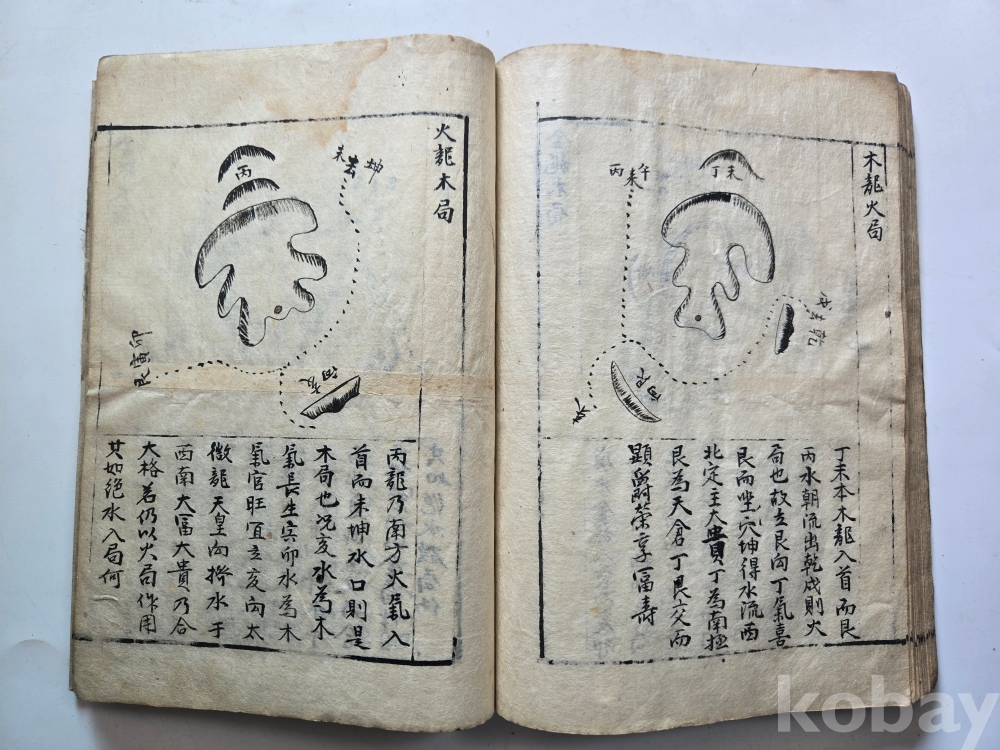 木龍火局
丁未
午
未
丙
戌
去
乾
向艮
丁未本木龍入首而艮
丙水朝流出乾戌則火
局也故立艮向丁氣喜
艮而坐穴坤得水流西
北定主大貴丁為南極
艮為天倉丁艮交而
顯爵榮享冨壽
火龍木局
丙
坤
去
未
向亥
卯
寅
艮
丙龍乃南方火氣入
首而未坤水口則是
木局也况亥水為木
氣長生寅卯水為木
氣官旺宜立亥向太
微龍天皇向擠水于
西南大冨大貴乃合
大格若仍以火局作用
其如絕水入局何
kobay